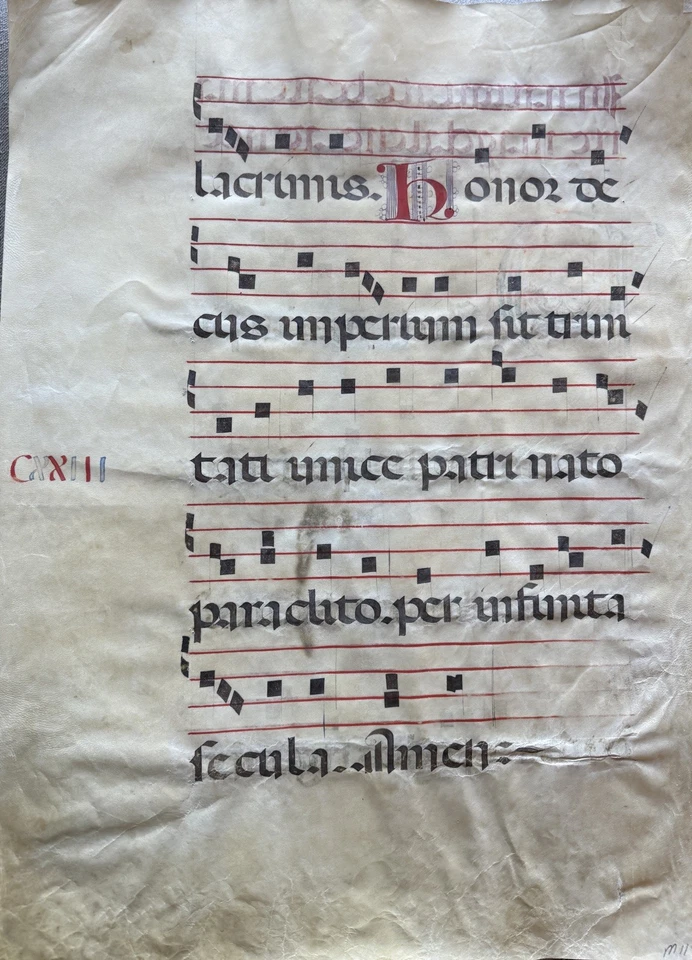 lacrimis. Honor de
cus imperium sit trini
CXXIII
tati unice patri nato
paraclito. per infinita
secula. Amen: